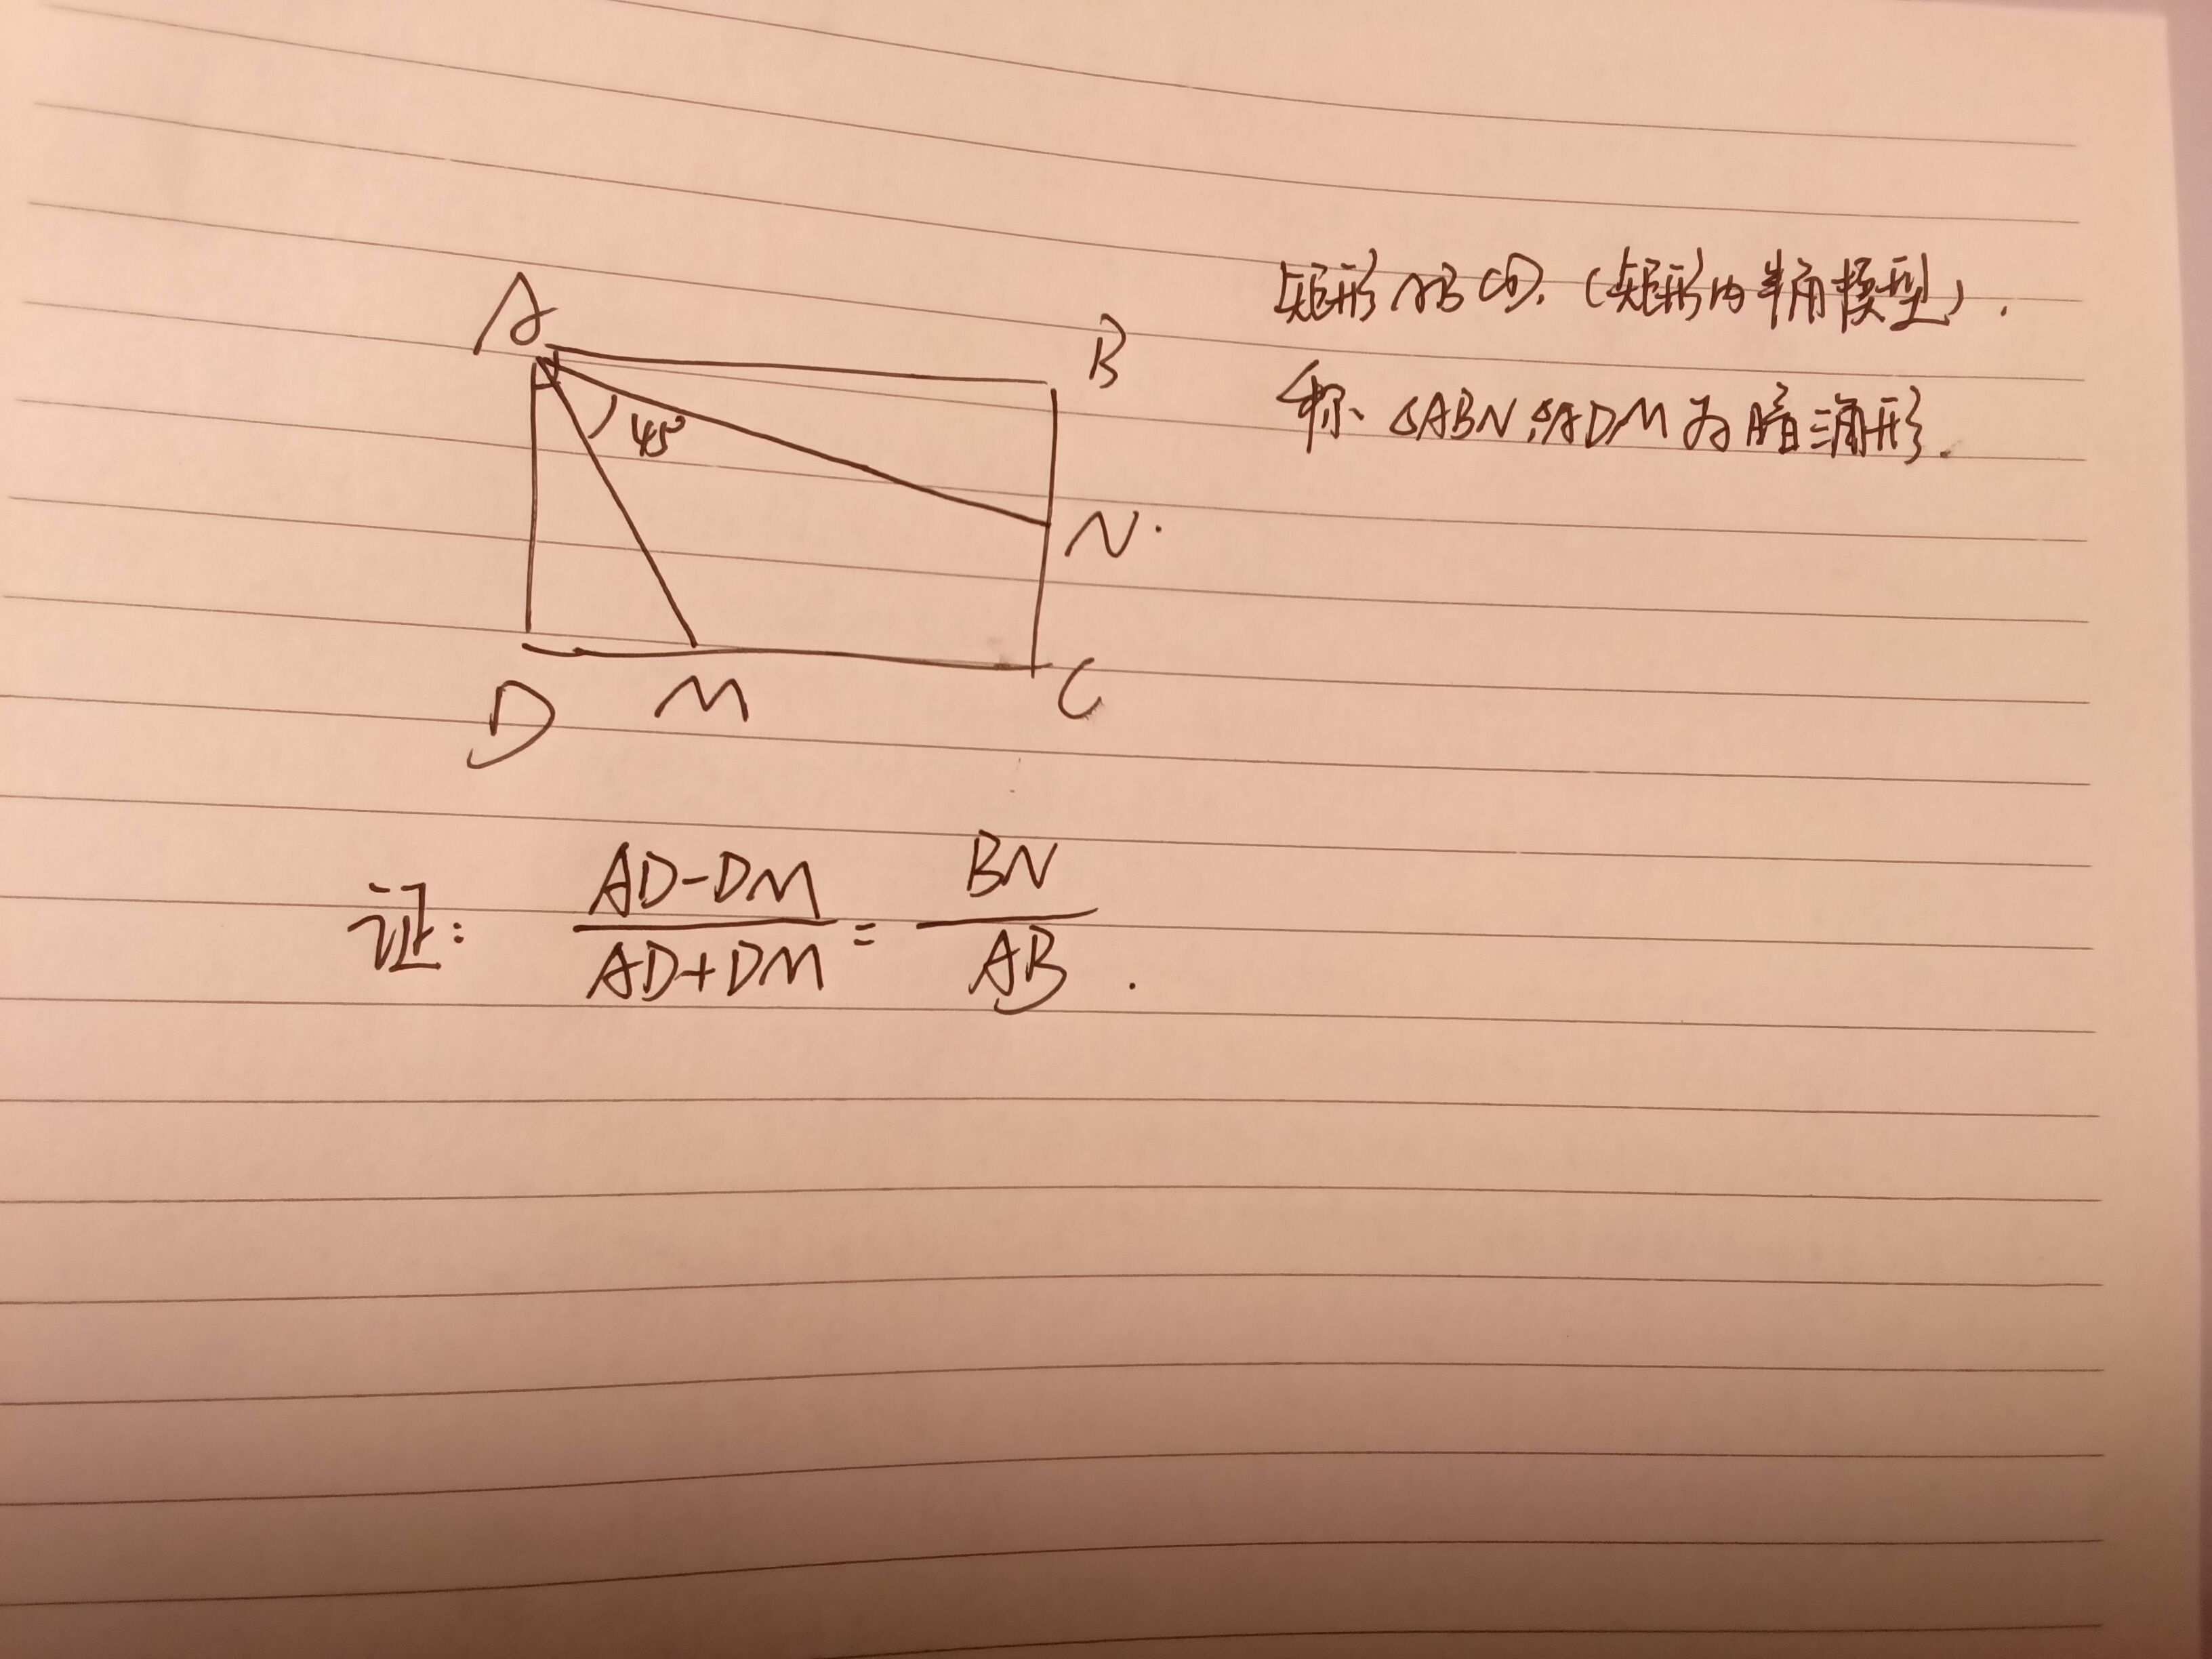 矩形ABCD.(矩形内半角模型).
A
B
称 △ABN,△ADM为暗三角形.
45°
N.
D M C
证: AD-DM/AD+DM = BN/AB.